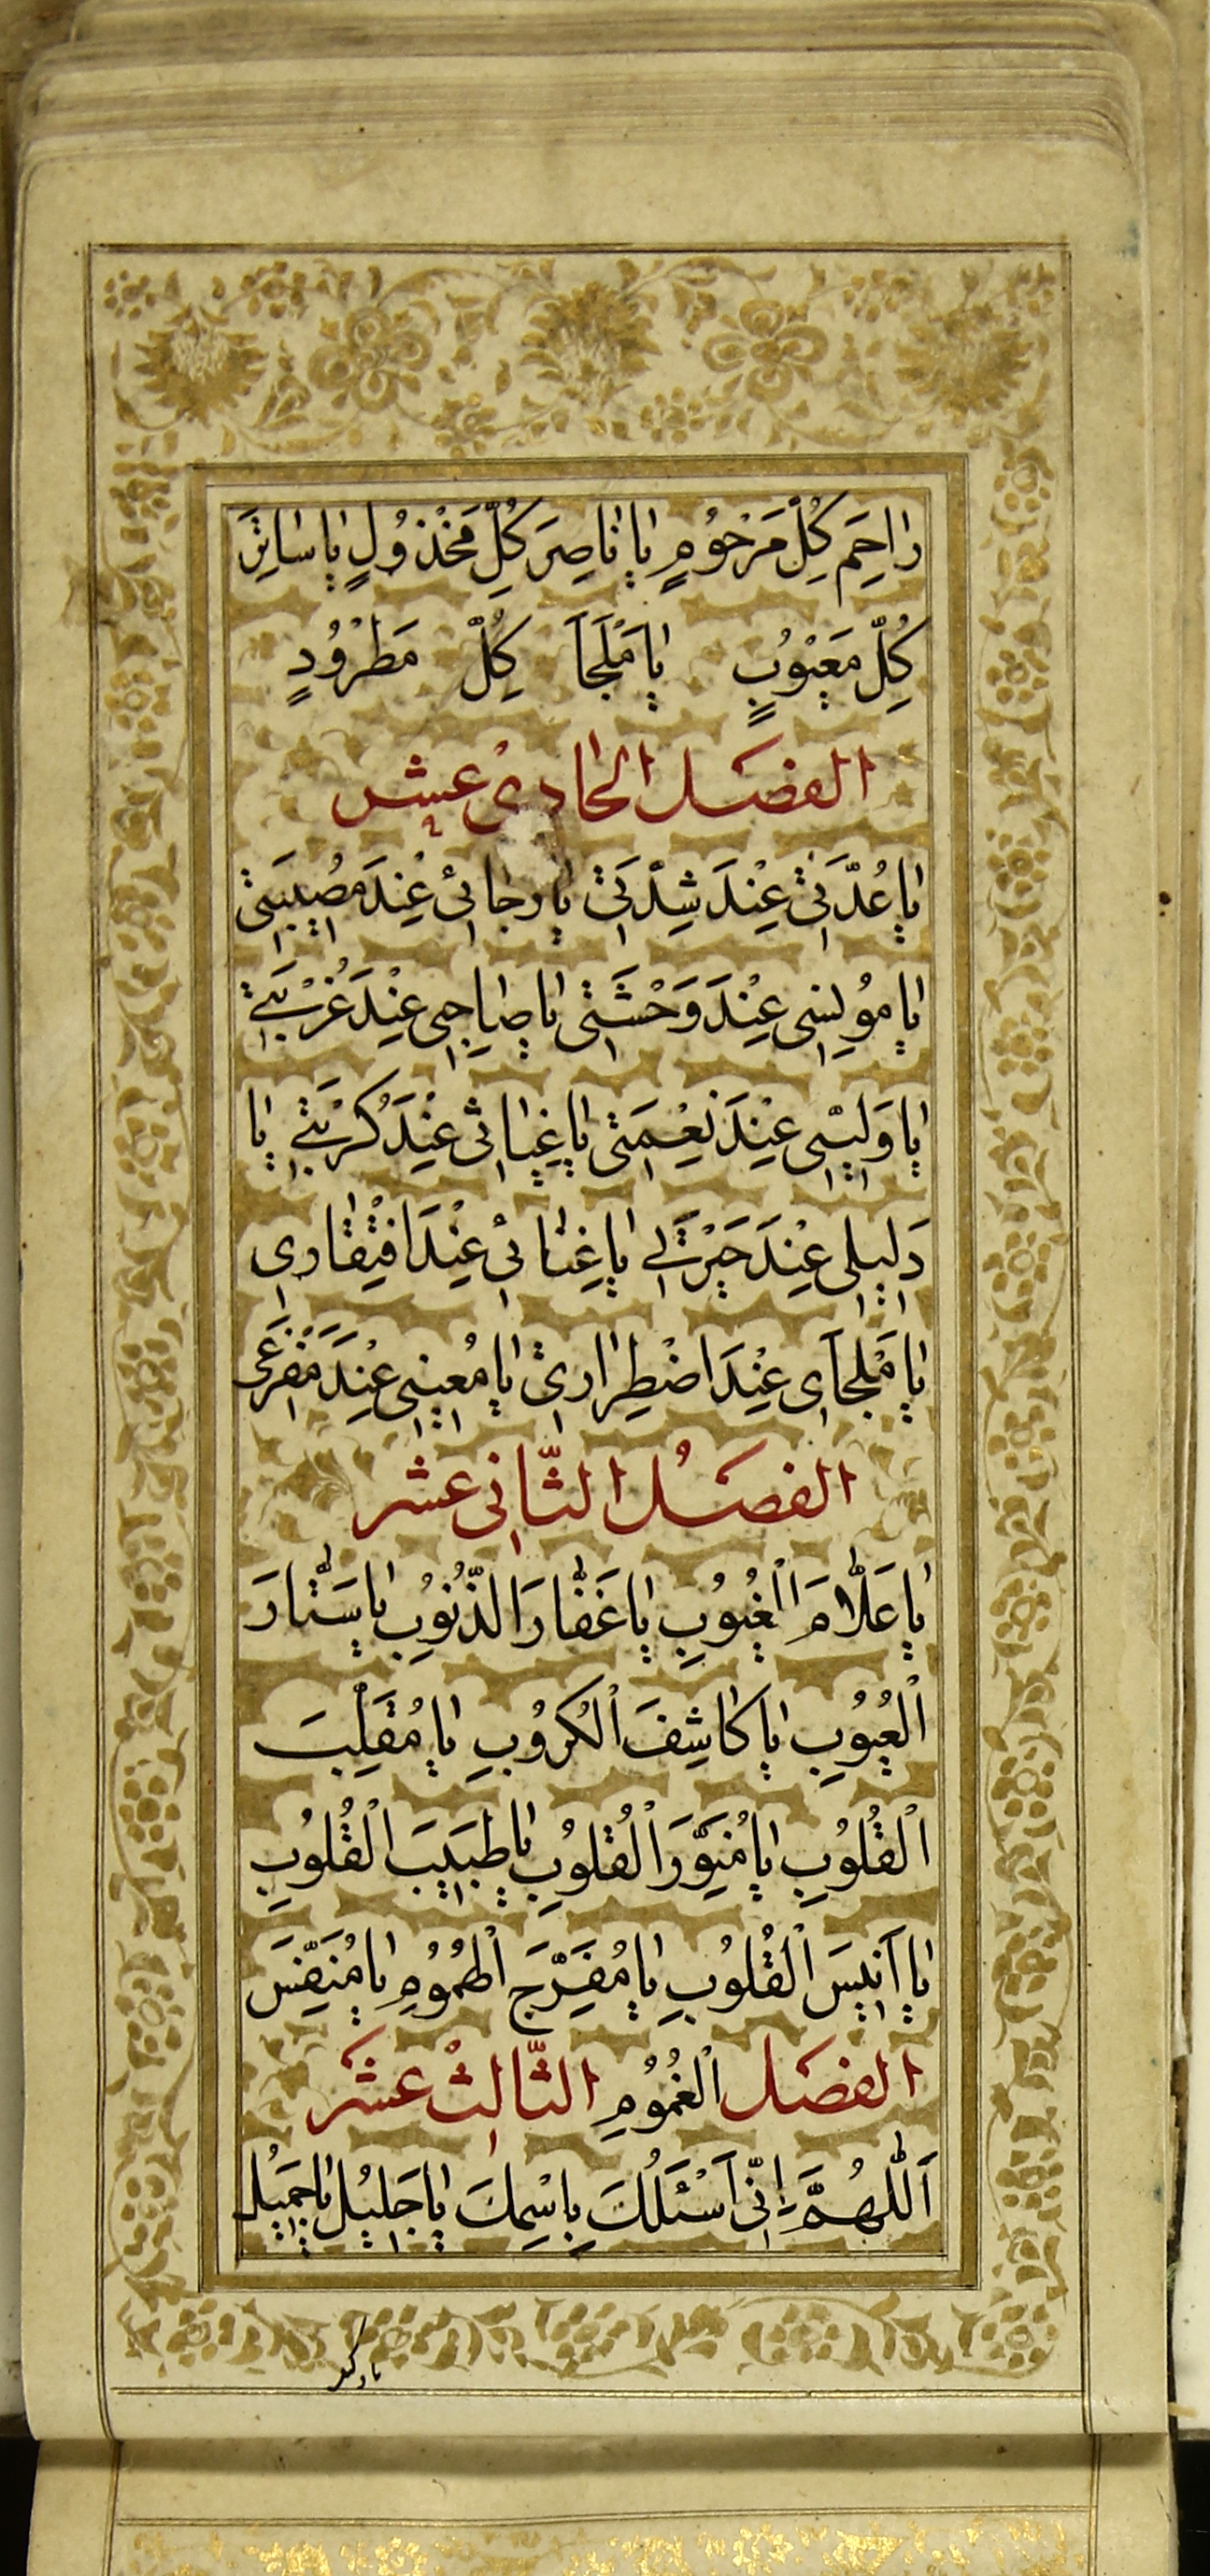 رَاحِمَ كُلِّ مَرْحُومٍ يَا نَاصِرَ كُلِّ مَخْذُولٍ يَا سَاتِرَ
كُلِّ مَعْيُوبٍ يَا مَلْجَأَ كُلِّ مَطْرُودٍ
الفصل الحادی عشر
يَا عُدَّتِي عِنْدَ شِدَّتِي يَا رَجَائِي عِنْدَ مُصِيبَتِي
يَا مُونِسِي عِنْدَ وَحْشَتِي يَا صَاحِبِي عِنْدَ غُرْبَتِي
يَا وَلِيِّي عِنْدَ نِعْمَتِي يَا غِيَاثِي عِنْدَ كُرْبَتِي يَا
دَلِيلِي عِنْدَ حَيْرَتِي يَا غِنَائِي عِنْدَ افْتِقَارِي
يَا مَلْجَاَی عِنْدَ اضْطِرَارِي يَا مُعِينِي عِنْدَ مَفْزَعِي
الفصلُ الثّانی عشر
يَا عَلَّامَ الْغُيُوبِ يَا غَفَّارَ الذُّنُوبِ يَا سَتَّارَ
الْعُيُوبِ يَا كَاشِفَ الْكُرُوبِ يَا مُقَلِّبَ
الْقُلُوبِ يَا مُنَوِّرَ الْقُلُوبِ يَا طَبِيبَ الْقُلُوبِ
يَا اَنِيسَ الْقُلُوبِ يَا مُفَرِّجَ الْهُمُومِ يَا مُنَفِّسَ
الفصل الْغُمُومِ الثّالث عشر
اَللّٰهُمَّ اِنِّي اَسْئَلُكَ بِاسْمِكَ يَا جَلِيلُ يَا جَمِيلُ